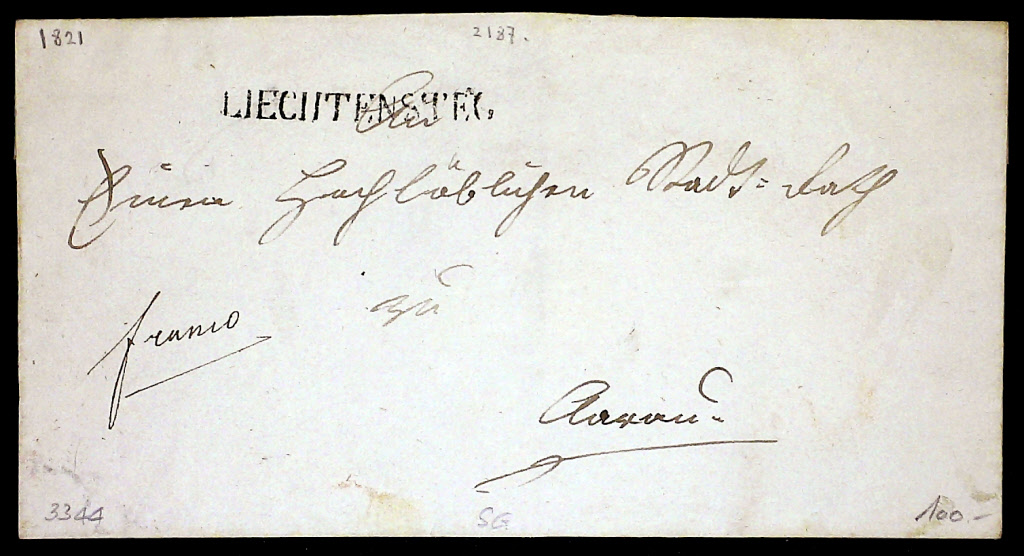 1821
2187.
LIECHTENSTEG
An
Einen Hochlöblichen Stadt=Rath
franco
zu
Aarau.
3344
SG
100.-